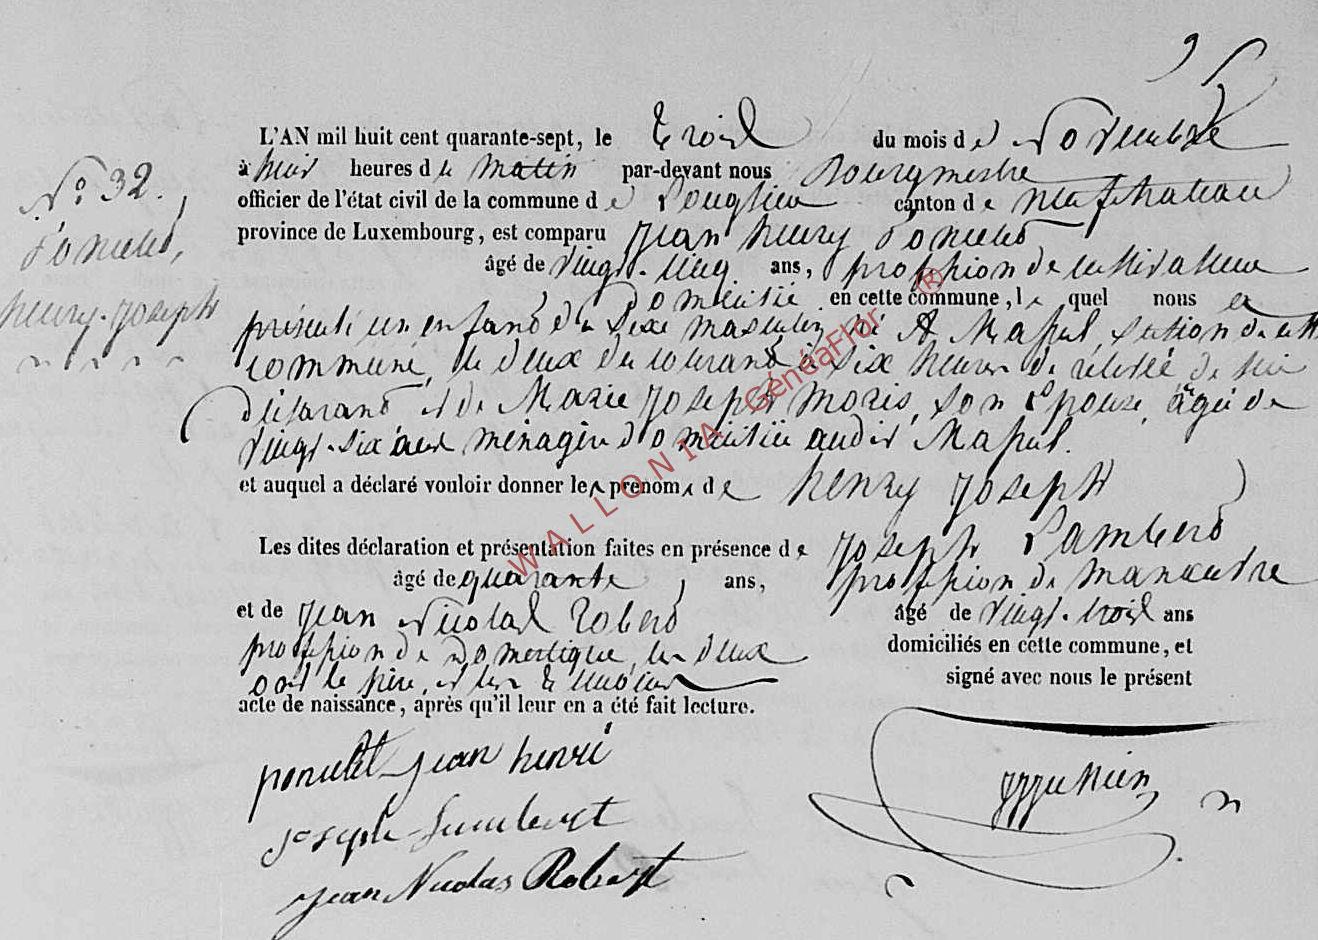 L'AN mil huit cent quarante-sept, le trois du mois de Novembre
à huit heures du matin par-devant nous Bourgmestre
officier de l'état civil de la commune de Longlier canton de neufchateau
N° 32. province de Luxembourg, est comparu Jean henry Poncelet
Poncelet, âgé de vingt-cinq ans, profession de cultivateur
henry-Joseph Domicilié en cette commune, lequel nous a
présenté un enfant du sexe masculin né A Massul, section de cette
commune, le deux du courant à six heures de relevée de lui
déclarant et de Marie Joseph Moris, son Epouse, âgée de
vingt-six ans ménagère domiciliée audit Massul.
et auquel a déclaré vouloir donner les prénoms de henry Joseph
Les dites déclaration et présentation faites en présence de Joseph Lambert
âgé de quarante, ans, profession de manœuvre
et de Jean Nicolas Robert âgé de vingt-trois ans
profession de Domestique, les deux domiciliés en cette commune, et
ont le père, et les témoins signé avec nous le présent
acte de naissance, après qu'il leur en a été fait lecture.
poncelet jean henri
joseph Lambert
jean Nicolas Robert
WALLONIA GénéaFlor ®